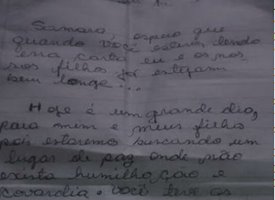 Samara, espero que
quando você estiver lendo
essa carta eu e os nos
sos filhos já estejam
bem longe...
Hoje é um grande dia,
para mim e meus filhos
pois estaremos buscando um
lugar de paz onde não
exista humilhação e
covardia. Você teve os